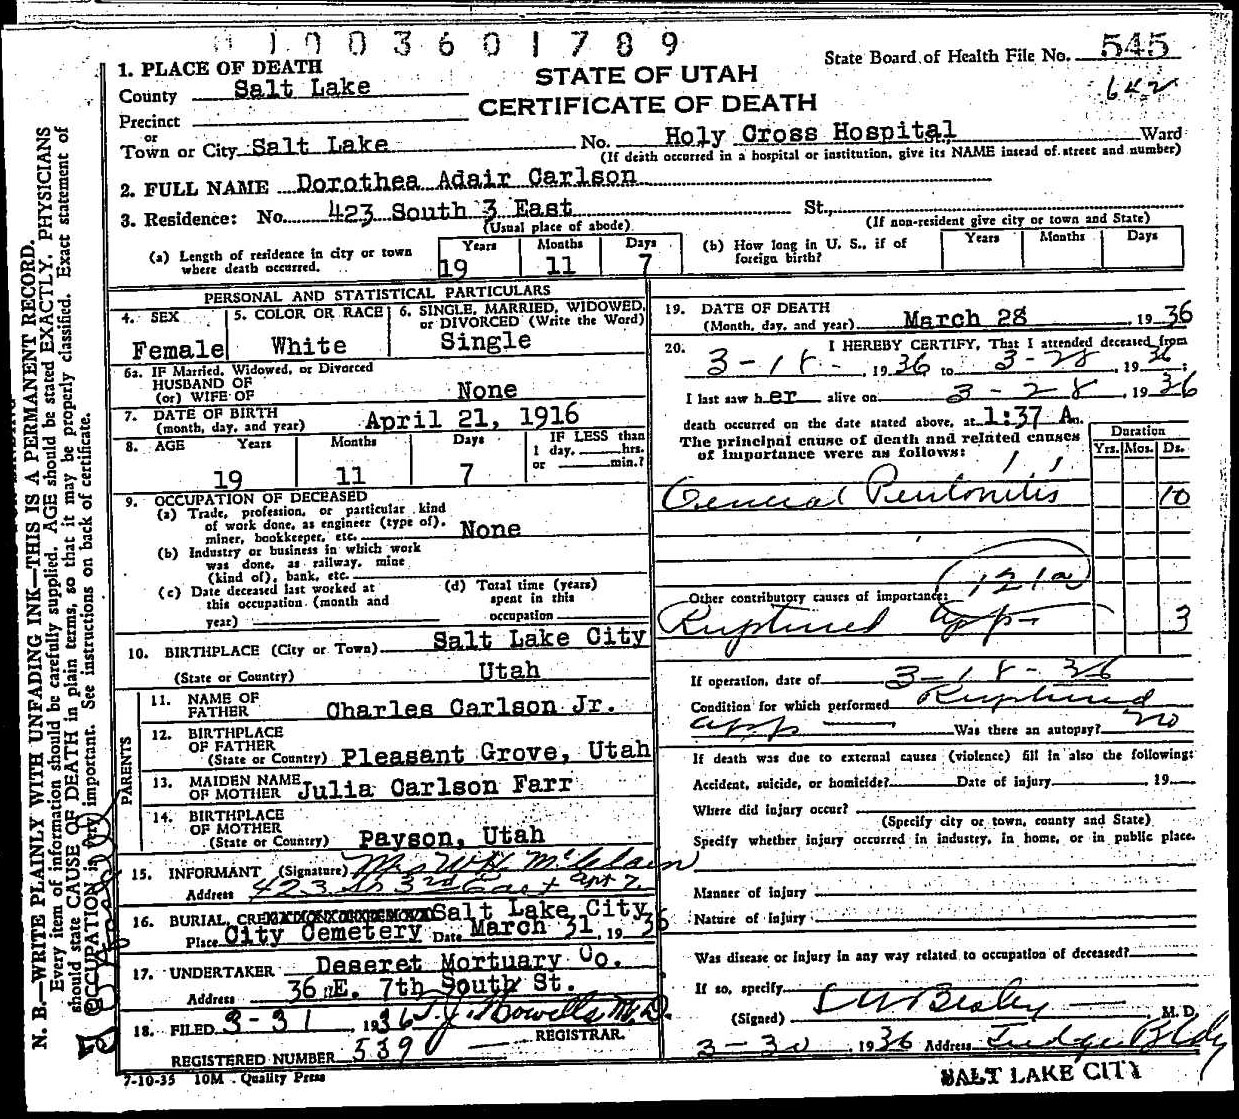 1003601789
State Board of Health File No. 545
642
STATE OF UTAH
CERTIFICATE OF DEATH
1. PLACE OF DEATH
County Salt Lake
Precinct
or
Town or City Salt Lake No. Holy Cross Hospital, Ward
(If death occurred in a hospital or institution, give its NAME instead of street and number)
2. FULL NAME Dorothea Adair Carlson
3. Residence: No. 423 South 3 East St.,
(Usual place of abode) (If non-resident give city or town and State)
(a) Length of residence in city or town where death occurred. Years 19 Months 11 Days 7
(b) How long in U. S., if of foreign birth? Years Months Days
PERSONAL AND STATISTICAL PARTICULARS
4. SEX Female
5. COLOR OR RACE White
6. SINGLE, MARRIED, WIDOWED, or DIVORCED (Write the Word) Single
6a. IF Married, Widowed, or Divorced
HUSBAND OF
(or) WIFE OF None
7. DATE OF BIRTH
(month, day, and year) April 21, 1916
8. AGE Years 19 Months 11 Days 7
IF LESS than
1 day, hrs.
or min.?
9. OCCUPATION OF DECEASED
(a) Trade, profession, or particular kind
of work done, as engineer (type of),
miner, bookkeeper, etc. None
(b) Industry or business in which work
was done, as railway, mine
(kind of), bank, etc.
(c) Date deceased last worked at
this occupation (month and
year)
(d) Total time (years)
spent in this
occupation
10. BIRTHPLACE (City or Town) Salt Lake City
(State or Country) Utah
PARENTS
11. NAME OF
FATHER Charles Carlson Jr.
12. BIRTHPLACE
OF FATHER
(State or Country) Pleasant Grove, Utah
13. MAIDEN NAME
OF MOTHER Julia Carlson Farr
14. BIRTHPLACE
OF MOTHER
(State or Country) Payson, Utah
15. INFORMANT (Signature) Mrs W H McClain
Address 423 So 3rd East apt 7
16. BURIAL, Salt Lake City
Place City Cemetery Date March 31, 1936
17. UNDERTAKER Deseret Mortuary Co.
Address 36 E. 7th South St.
18. FILED 3-31, 1936 T. J. Howells M. D.
REGISTRAR.
REGISTERED NUMBER 539
7-10-35 10M Quality Press
19. DATE OF DEATH
(Month, day, and year) March 28, 1936
20. I HEREBY CERTIFY, That I attended deceased from
3-18-, 1936 to 3-28, 1936;
I last saw her alive on 3-28, 1936
death occurred on the date stated above, at 1:37 A.m.
The principal cause of death and related causes
of importance were as follows:
Duration
Yrs. Mos. Ds.
General Peritonitis 10
121a
Other contributory causes of importance:
Ruptured app- 3
If operation, date of 3-18-36
Condition for which performed Ruptured
app Was there an autopsy? no
If death was due to external causes (violence) fill in also the following:
Accident, suicide, or homicide? Date of injury 19
Where did injury occur?
(Specify city or town, county and State)
Specify whether injury occurred in industry, in home, or in public place.
Manner of injury
Nature of injury
Was disease or injury in any way related to occupation of deceased?
If so, specify
(Signed) M. D.
3-30, 1936 Address Judge Bldg
SALT LAKE CITY
N. B.—WRITE PLAINLY WITH UNFADING INK—THIS IS A PERMANENT RECORD.
Every item of information should be carefully supplied. AGE should be stated EXACTLY. PHYSICIANS
should state CAUSE OF DEATH in plain terms, so that it may be properly classified. Exact statement of
OCCUPATION is very important. See instructions on back of certificate.